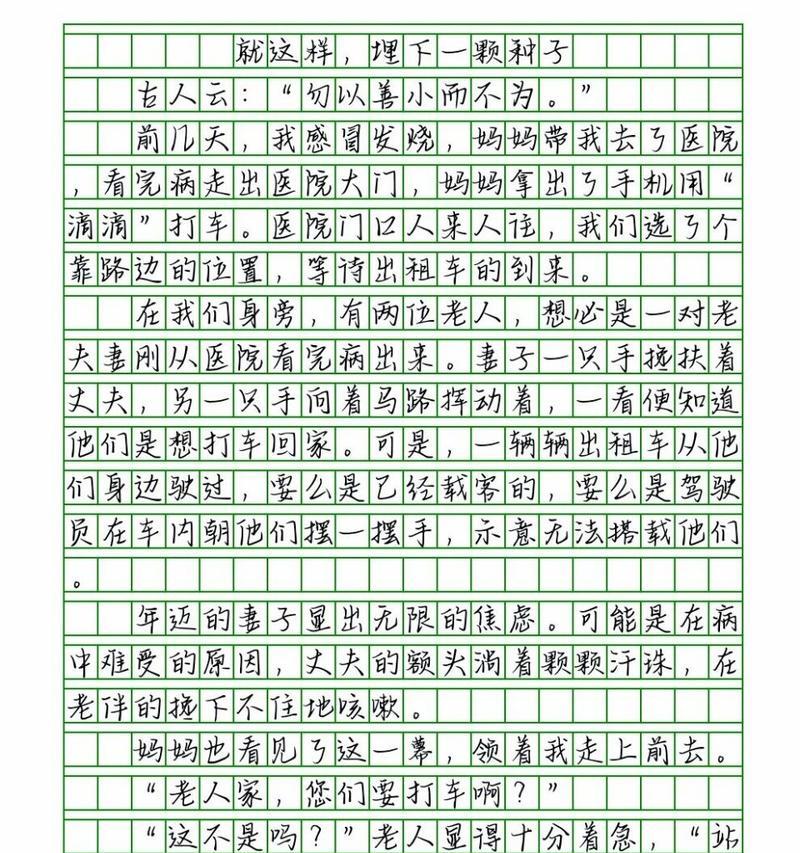 就这样，埋下一颗种子
古人云：“勿以善小而不为。”
前几天，我感冒发烧，妈妈带我去了医院
，看完病走出医院大门，妈妈拿出了手机用“
滴滴”打车。医院门口人来人往，我们选了个
靠路边的位置，等待出租车的到来。
在我们身旁，有两位老人，想必是一对老
夫妻刚从医院看完病出来。妻子一只手搀扶着
丈夫，另一只手向着马路挥动着，一看便知道
他们是想打车回家。可是，一辆辆出租车从他
们身边驶过，要么是已经载客的，要么是驾驶
员在车内朝他们摆一摆手，示意无法搭载他们
。
年迈的妻子显出无限的焦虑。可能是在病
中难受的原因，丈夫的额头淌着颗颗汗珠，在
老伴的搀下不住地咳嗽。
妈妈也看见了这一幕，领着我走上前去。
“老人家，您们要打车啊？”
“这不是吗？”老人显得十分着急，“站